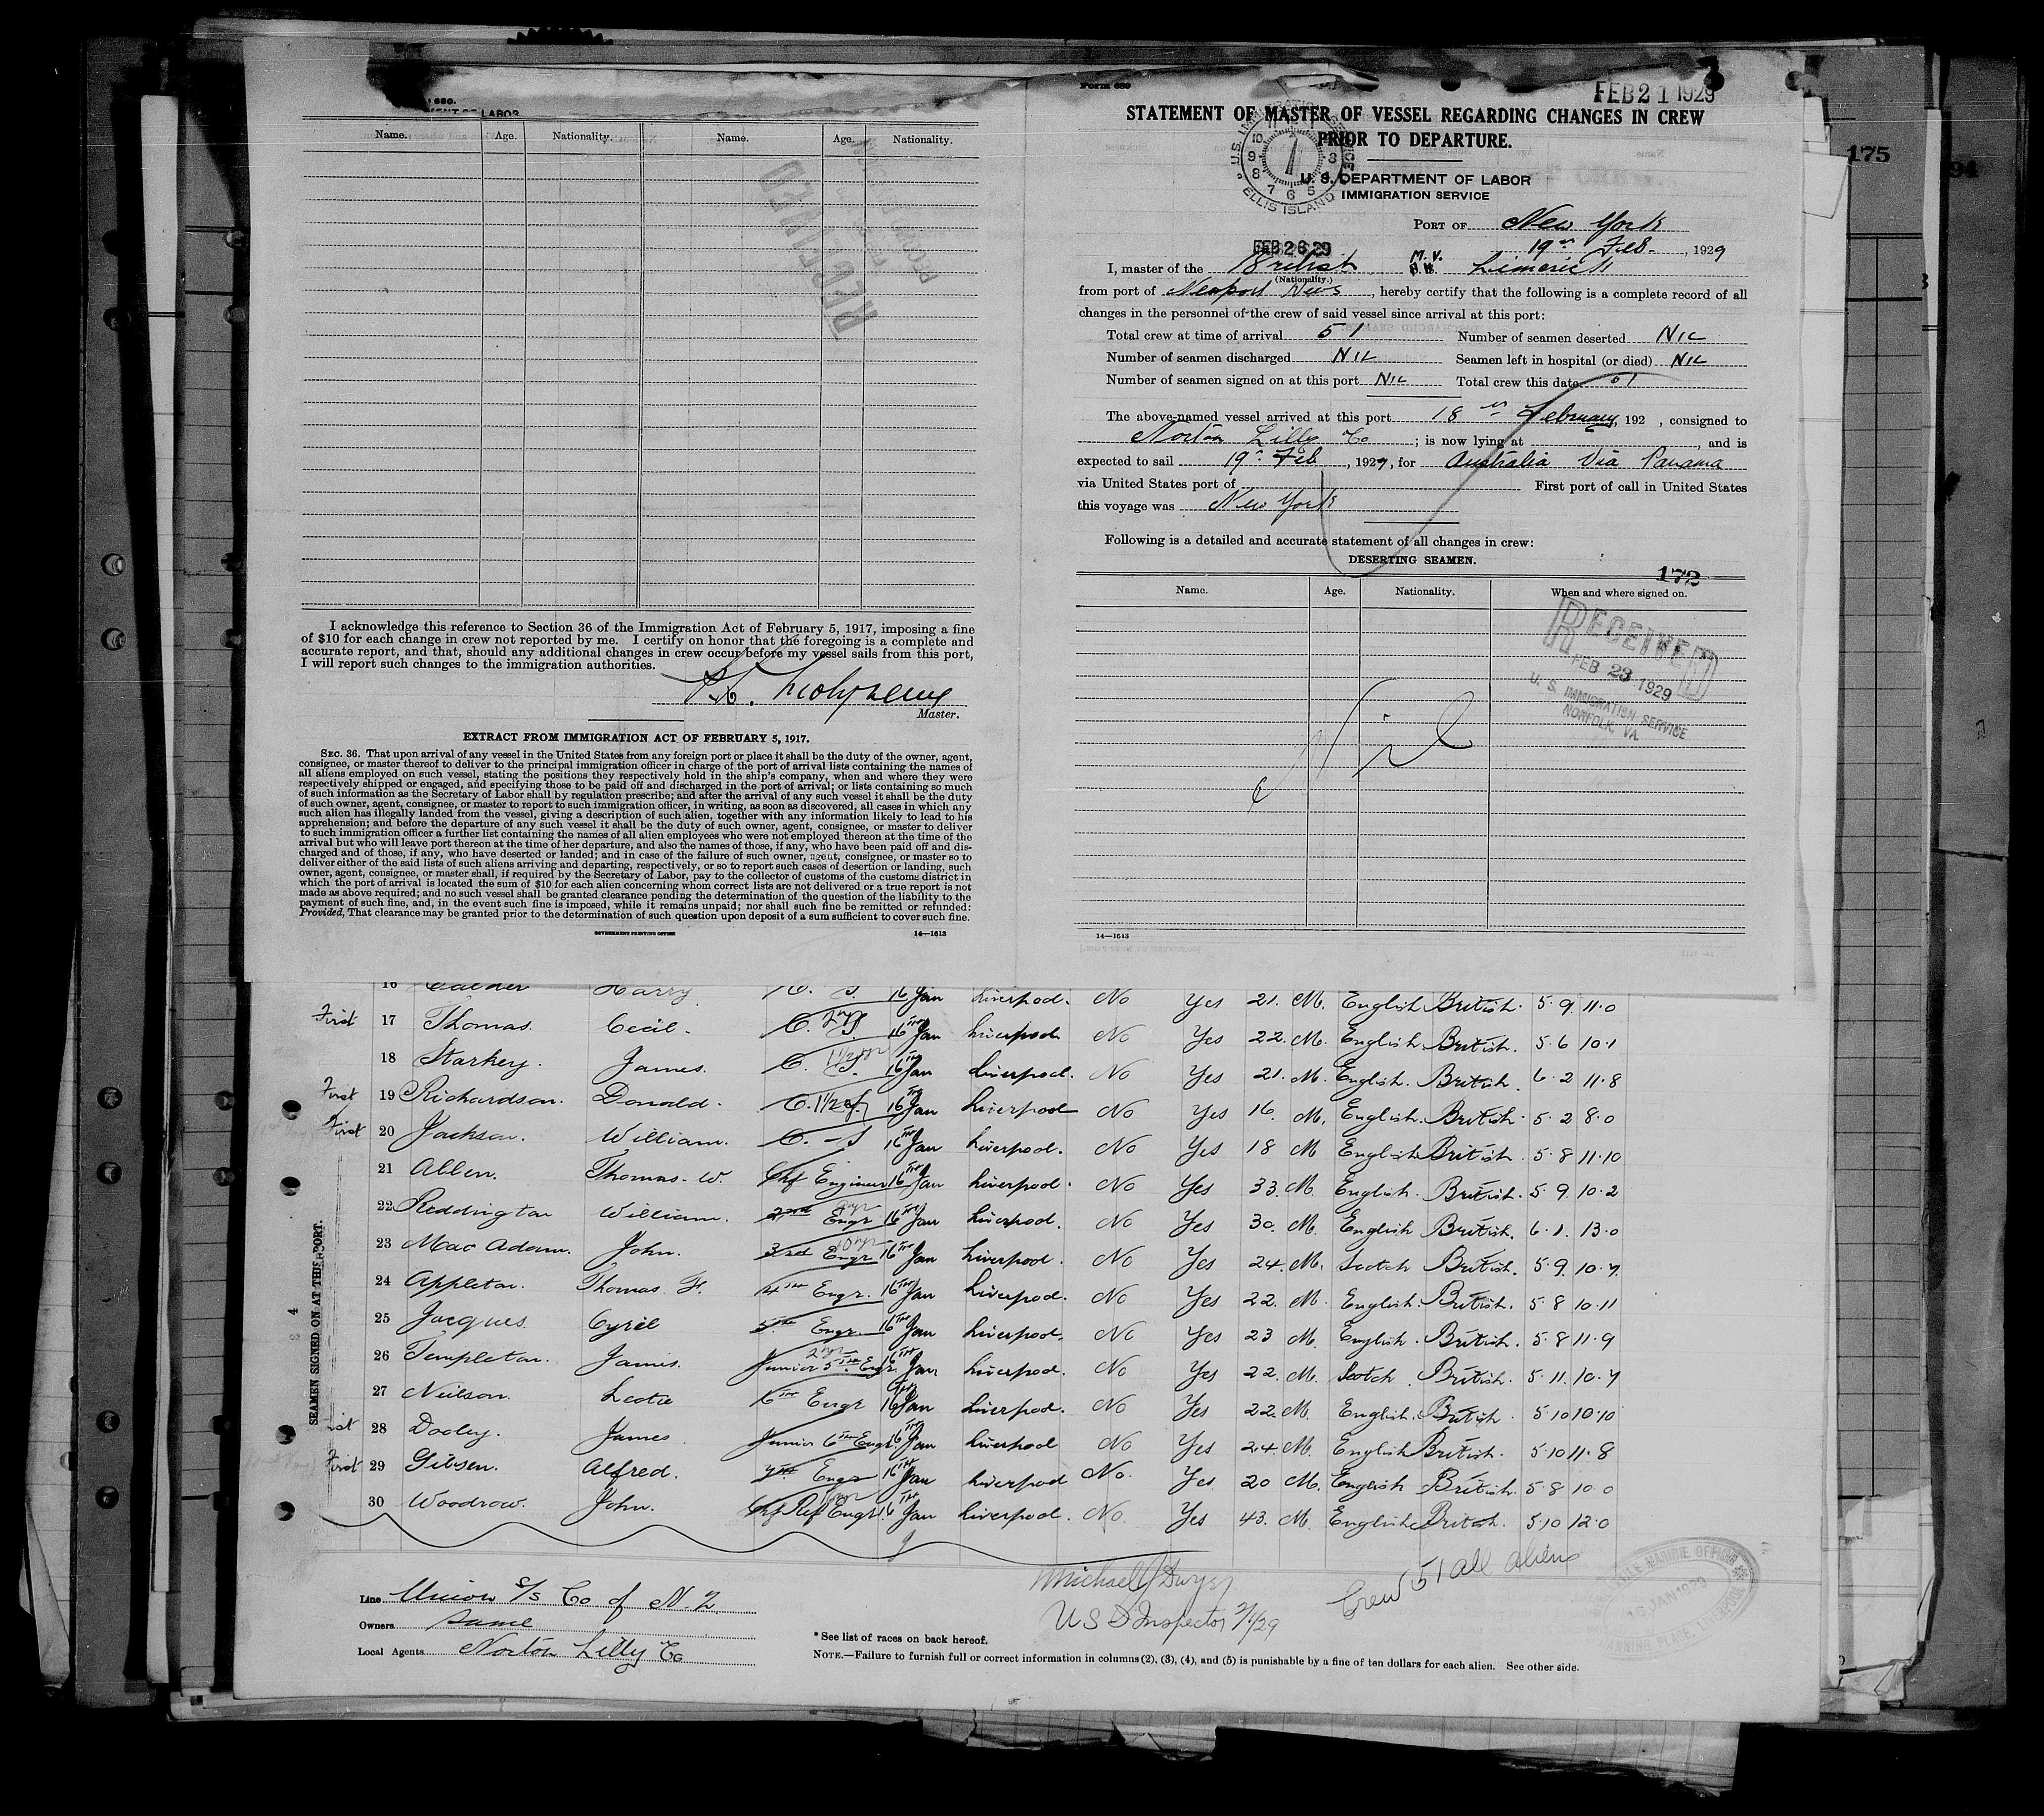 680.
MENT OF LABOR
Name. Age. Nationality. Name. Age. Nationality.
RECEIVED
I acknowledge this reference to Section 36 of the Immigration Act of February 5, 1917, imposing a fine
of $10 for each change in crew not reported by me. I certify on honor that the foregoing is a complete and
accurate report, and that, should any additional changes in crew occur before my vessel sails from this port,
I will report such changes to the immigration authorities.
Master.
EXTRACT FROM IMMIGRATION ACT OF FEBRUARY 5, 1917.
SEC. 36. That upon arrival of any vessel in the United States from any foreign port or place it shall be the duty of the owner, agent,
consignee, or master thereof to deliver to the principal immigration officer in charge of the port of arrival lists containing the names of
all aliens employed on such vessel, stating the positions they respectively hold in the ship's company, when and where they were
respectively shipped or engaged, and specifying those to be paid off and discharged in the port of arrival; or lists containing so much
of such information as the Secretary of Labor shall by regulation prescribe; and after the arrival of any such vessel it shall be the duty
of such owner, agent, consignee, or master to report to such immigration officer, in writing, as soon as discovered, all cases in which any
such alien has illegally landed from the vessel, giving a description of such alien, together with any information likely to lead to his
apprehension; and before the departure of any such vessel it shall be the duty of such owner, agent, consignee, or master to deliver
to such immigration officer a further list containing the names of all alien employees who were not employed thereon at the time of the
arrival but who will leave port thereon at the time of her departure, and also the names of those, if any, who have been paid off and dis-
charged and of those, if any, who have deserted or landed; and in case of the failure of such owner, agent, consignee, or master so to
deliver either of the said lists of such aliens arriving and departing, respectively, or so to report such cases of desertion or landing, such
owner, agent, consignee, or master shall, if required by the Secretary of Labor, pay to the collector of customs of the customs district in
which the port of arrival is located the sum of $10 for each alien concerning whom correct lists are not delivered or a true report is not
made as above required; and no such vessel shall be granted clearance pending the determination of the question of the liability to the
payment of such fine, and, in the event such fine is imposed, while it remains unpaid; nor shall such fine be remitted or refunded:
Provided, That clearance may be granted prior to the determination of such question upon deposit of a sum sufficient to cover such fine.
GOVERNMENT PRINTING OFFICE 14—1613
Form 680
FEB 21 1929
STATEMENT OF MASTER OF VESSEL REGARDING CHANGES IN CREW
PRIOR TO DEPARTURE.
U. S. DEPARTMENT OF LABOR
IMMIGRATION SERVICE
U.S. IMMIGRATION SERVICE ELLIS ISLAND
PORT OF New York
19th Feb. , 1929
FEB 26 29
I, master of the British M.V. Limerick
(Nationality.)
from port of Newport News , hereby certify that the following is a complete record of all
changes in the personnel of the crew of said vessel since arrival at this port:
Total crew at time of arrival 51 Number of seamen deserted NIL
Number of seamen discharged NIL Seamen left in hospital (or died) NIL
Number of seamen signed on at this port NIL Total crew this date 51
The above-named vessel arrived at this port 18th February, 192 , consigned to
Norton Lilly Co ; is now lying at , and is
expected to sail 19th Feb , 1929, for Australia Via Panama
via United States port of First port of call in United States
this voyage was New York
Following is a detailed and accurate statement of all changes in crew:
DESERTING SEAMEN.
172
Name. Age. Nationality. When and where signed on.
RECEIVED
FEB 23 1929
U. S. IMMIGRATION SERVICE
NORFOLK, VA.
Nil
14—1613
175
94
16 Harry 16 Jan Liverpool. No Yes 21. M. English British. 5.9 11.0
First 17 Thomas. Cecil. 16th Jan Liverpool No Yes 22. M. English British. 5.6 10.1
18 Starkey. James. 16th Jan Liverpool. No Yes 21. M. English. British. 6.2 11.8
First 19 Richardson. Donald. 16th Jan Liverpool No Yes 16. M. English. British. 5.2 8.0
First 20 Jackson. William. 16th Jan Liverpool. No Yes 18 M English British. 5.8 11.10
21 Allen. Thomas. W. Chf Engineer 16th Jan Liverpool. No Yes 33. M. English. British. 5.9. 10.2
22 Reddington William. 2nd Engr 16th Jan Liverpool. No Yes 30. M. English British. 6.1. 13.0
23 Mac Adam. John. 3rd Engr 16th Jan Liverpool. No Yes 24. M. Scotch British. 5.9. 10.7.
24 Appleton. Thomas. F. 4th Engr. 16th Jan Liverpool. No Yes 22. M. English. British. 5.8 10.11
25 Jacques. Cyril 5th Engr. 16th Jan Liverpool. No Yes 23 M. English. British. 5.8 11.9
26 Templeton. James. Junior 5th Engr. 16th Jan Liverpool. No Yes 22. M. Scotch British. 5.11. 10.7
27 Neilson. Leslie 6th Engr 16th Jan Liverpool. No Yes 22. M. English. British. 5.10 10.10
1st 28 Dooley. James Junior 6th Engr. 16th Jan Liverpool No Yes 24. M. English British. 5.10 11.8
First 29 Gibson. Alfred. 7th Engr 16th Jan Liverpool No. Yes 20 M. English British. 5.8 10.0
30 Woodrow. John. Chf Ref Engr. 16th Jan Liverpool. No. Yes 43. M. English British. 5.10 12.0
SEAMEN SIGNED ON AT THIS PORT.
4
Line Union S/S Co of N.Z.
Owners same
Local Agents Norton Lilly Co
Michael J Dwyer
U S Inspector
Crew 51 all aliens
16 JAN 1929
* See list of races on back hereof.
NOTE.—Failure to furnish full or correct information in columns (2), (3), (4), and (5) is punishable by a fine of ten dollars for each alien. See other side.